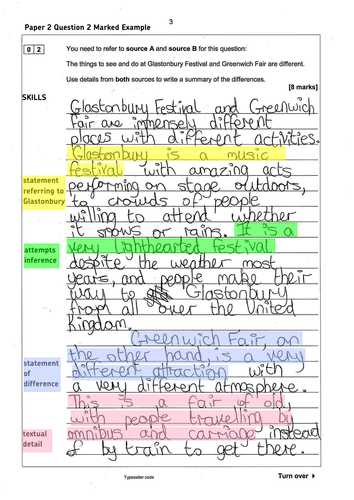 3
Paper 2 Question 2 Marked Example
0 2 You need to refer to source A and source B for this question:
The things to see and do at Glastonbury Festival and Greenwich Fair are different.
Use details from both sources to write a summary of the differences.
[8 marks]
SKILLS
Glastonbury Festival and Greenwich
Fair are immensely different
places with different activities.
Glastonbury is a music
festival with amazing acts
statement
referring to
Glastonbury
performing on stage outdoors,
to crowds of people
willing to attend whether
it snows or rains. It is a
attempts
inference
very lighthearted festival
despite the weather most
years, and people make their
way to Glastonbury
from all over the United
Kingdom.
Greenwich Fair, on
the other hand, is a very
statement
of
difference
different attraction with
a very different atmosphere.
This is a fair of old,
with people travelling by
textual
detail
omnibus and carriage instead
of by train to get there.
Typesetter code
Turn over